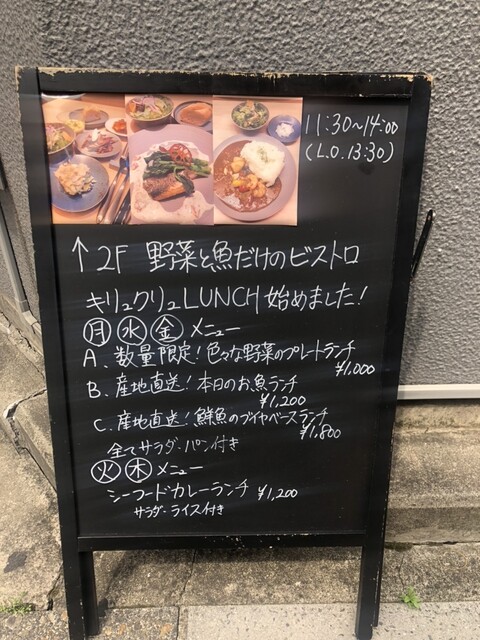 11:30~14:00
(L.O.13:30)
↑2F 野菜と魚だけのビストロ
キリュクリュLUNCH始めました!
月 水 金 メニュー
A. 数量限定!色々な野菜のプレートランチ
¥1,000
B. 産地直送!本日のお魚ランチ
¥1,200
C. 産地直送!鮮魚のブイヤベースランチ
¥1,800
全てサラダ・パン付き
火 木 メニュー
シーフードカレーランチ ¥1,200
サラダ・ライス付き